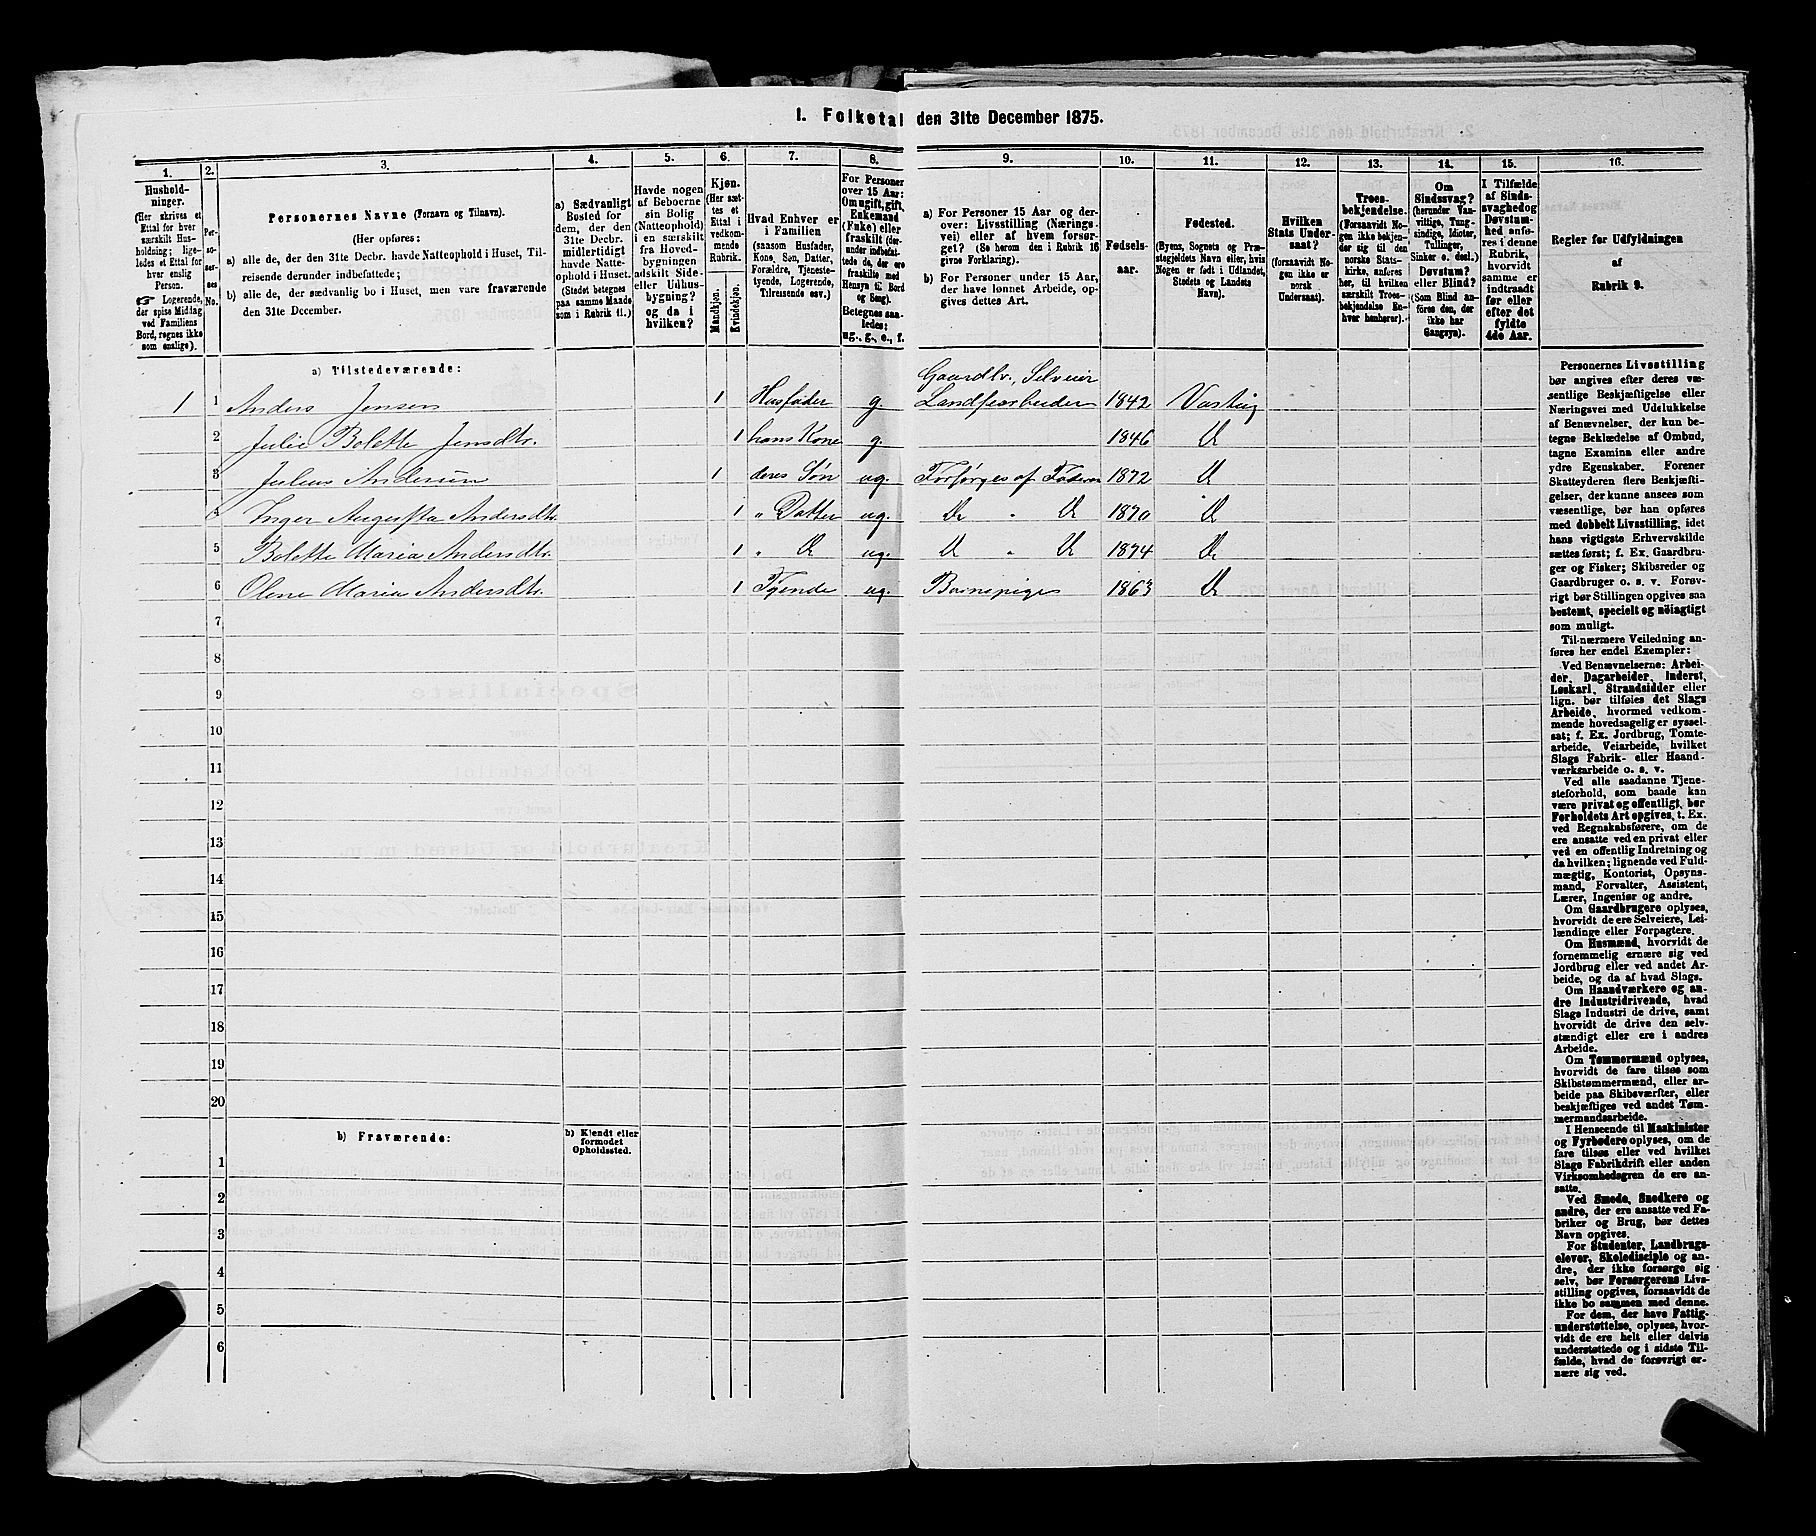 1. Folketal den 31te December 1875.
1. 2. 3. 4. 5. 6. 7. 8. 9. 10. 11. 12. 13. 14. 15. 16.
Hushold-
ninger.
(Her skrives et
Ettal for hver
særskilt Hus-
holdning; lige-
ledes et Ettal for
hver enslig
Person.
☞ Logerende,
der spise Middag
ved Familiens
Bord, regnes ikke
som enslige).
Per-
so-
ner-
nes
No.
Personernes Navne (Fornavn og Tilnavn).
(Her opføres:
a) alle de, der den 31te Decbr. havde Natteophold i Huset, Til-
reisende derunder indbefattede;
b) alle de, der sædvanlig bo i Huset, men vare fraværende
den 31te December.
a) Sædvanligt
Bosted for
dem, der den
31te Decbr.
midlertidigt
havde Natte-
ophold i Huset.
(Stedet betegnes
paa samme Maade
som i Rubrik 11.)
Havde nogen
af Beboerne
sin Bolig
(Natteophold)
i en særskilt
fra Hoved-
bygningen
adskilt Side-
eller Udhus-
bygning?
og da i
hvilken?
Kjøn.
(Her sæt-
tes et
Ettal i
vedkom-
mende
Rubrik.
Mandkjøn.
Kvindekjøn.
Hvad Enhver er
i Familien
(saasom Husfader,
Kone, Søn, Datter,
Forældre, Tjeneste-
tyende, Logerende,
Tilreisende osv.)
For Personer
over 15 Aar:
Om ugift, gift,
Enkemand
(Enke) eller
fraskilt (der-
under indbefat-
tede de, der ere
fraskilte med
Hensyn til Bord
og Seng).
Betegnes saa-
ledes:
ug., g., e., f.
a) For Personer 15 Aar og der-
over: Livsstilling (Nærings-
vei) eller af hvem forsør-
get? (Se herom den i Rubrik 16
givne Forklaring).
b) For Personer under 15 Aar,
der have lønnet Arbeide, op-
gives dettes Art.
Fødsels-
aar.
Fødested.
(Byens, Sognets og Præ-
stegjeldets Navn eller, hvis
Nogen er født i Udlandet,
Stedets og Landets
Navn).
Hvilken
Stats Under-
saat?
(forsaavidt No-
gen ikke er
norsk
Undersaat).
Troes-
bekjendelse.
(Forsaavidt No-
gen ikke bekjen-
der sig til den
norske Stats-
kirke, anføres
her, til hvilken
særskilt Troes-
bekjendelse En-
hver henhører).
Om
Sindssvag?
(herunder Van-
vittige, Tung-
sindige, Idioter,
Tullinger,
Sinker o. desl.)
Døvstum?
eller Blind?
(Som Blind an-
føres den, der
ikke har
Gangsyn).
I Tilfælde
af Sinds-
svaghed og
Døvstum-
hed anfø-
res i denne
Rubrik,
hvorvidt
samme er
indtraadt
før eller
efter det
fyldte
4de Aar.
Regler for Udfyldningen
af
Rubrik 9.
a) Tilstedeværende:
Gaardbr., Selveier
1 1 Anders Jensen 1 Husfader g. Landfearbeider 1842
2 Julie Bolette Jensdtr. 1 hans Kone g. 1846 D
3 Julius Andersen 1 deres Søn ug. Forsørges af Faderen 1872 D
4 Inger Augusta Andersdtr. 1 " Datter ug. D " D 1870 D
5 Bolette Maria Andersdtr. 1 " D ug. D " D 1874 D
6 Olene Maria Andersdtr. 1 Tyende ug. Barnepige 1863 D
7
8
9
10
11
12
13
14
15
16
17
18
19
20
b) Fraværende:
b) Kjendt eller
formodet
Opholdssted.
1
2
3
4
5
6
Personernes Livsstilling
bør angives efter deres væ-
sentlige Beskjæftigelse eller
Næringsvei med Udelukkelse
af Benævnelser, der kun be-
tegne Beklædelse af Ombud,
tagne Examina eller andre
ydre Egenskaber. Forener
Skatteyderen flere Beskjæfti-
gelser, der kunne ansees som
væsentlige, bør han opføres
med dobbelt Livsstilling, idet
hans vigtigste Erhvervskilde
sættes først; f. Ex. Gaardbru-
ger og Fisker; Skibsreder og
Gaardbruger o. s. v. Forøv-
rigt bør Stillingen opgives saa
bestemt, specielt og nøiagtigt
som muligt.
Til nærmere Veiledning an-
føres her endel Exempler:
Ved Benævnelserne: Arbei-
der, Dagarbeider, Inderst,
Løskarl, Strandsidder eller
lign. bør tilføies det Slags
Arbeide, hvormed vedkom-
mende hovedsagelig er syssel-
sat; f. Ex. Jordbrug, Tomte-
arbeide, Veiarbeide, hvilket
Slags Fabrik- eller Haand-
værksarbeide o. s. v.
Ved alle saadanne Tjene-
steforhold, som baade kan
være privat og offentligt, bør
Forholdets Art opgives, t. Ex.
ved Regnskabsførere, om de
ere ansatte ved en privat eller
ved en offentlig Indretning og
da hvilken; lignende ved Fuld-
mægtig, Kontorist, Opsyns-
mand, Forvalter, Assistent,
Lærer, Ingeniør og andre.
Om Gaardbrugere oplyses,
hvorvidt de ere Selveiere, Lei-
lændinge eller Forpagtere.
Om Husmænd, hvorvidt de
fornemmelig ernære sig ved
Jordbrug eller ved andet Ar-
beide, og da af hvad Slags.
Om Haandværkere og an-
dre Industridrivende, hvad
Slags Industri de drive, samt
hvorvidt de drive den selv-
stændigt eller ere i andres
Arbeide.
Om Tømmermænd oplyses,
hvorvidt de fare tilsøs som
Skibstømmermænd, eller ar-
beide paa Skibsværfter, eller
beskjæftiges ved andet Tøm-
mermandsarbeide.
I Henseende til Maskinister
og Fyrbødere oplyses, om de
fare tilsøs eller ved hvilket
Slags Fabrikdrift eller anden
Virksomhedsgren de ere an-
satte.
Ved Smede, Snedkere og
andre, der ere ansatte ved Fa-
briker og Brug, bør dettes
Navn opgives.
For Studenter, Landbrugs-
elever, Skoledisciple og an-
dre, der ikke forsørge sig
selv, bør Forsørgerens Livs-
stilling opgives, forsaavidt de
ikke bo sammen med denne.
For dem, der have Fattig-
understøttelse, oplyses, hvor-
vidt de ere helt eller delvis
understøttede og i sidste Til-
fælde, hvad de forøvrigt er-
nære sig ved.